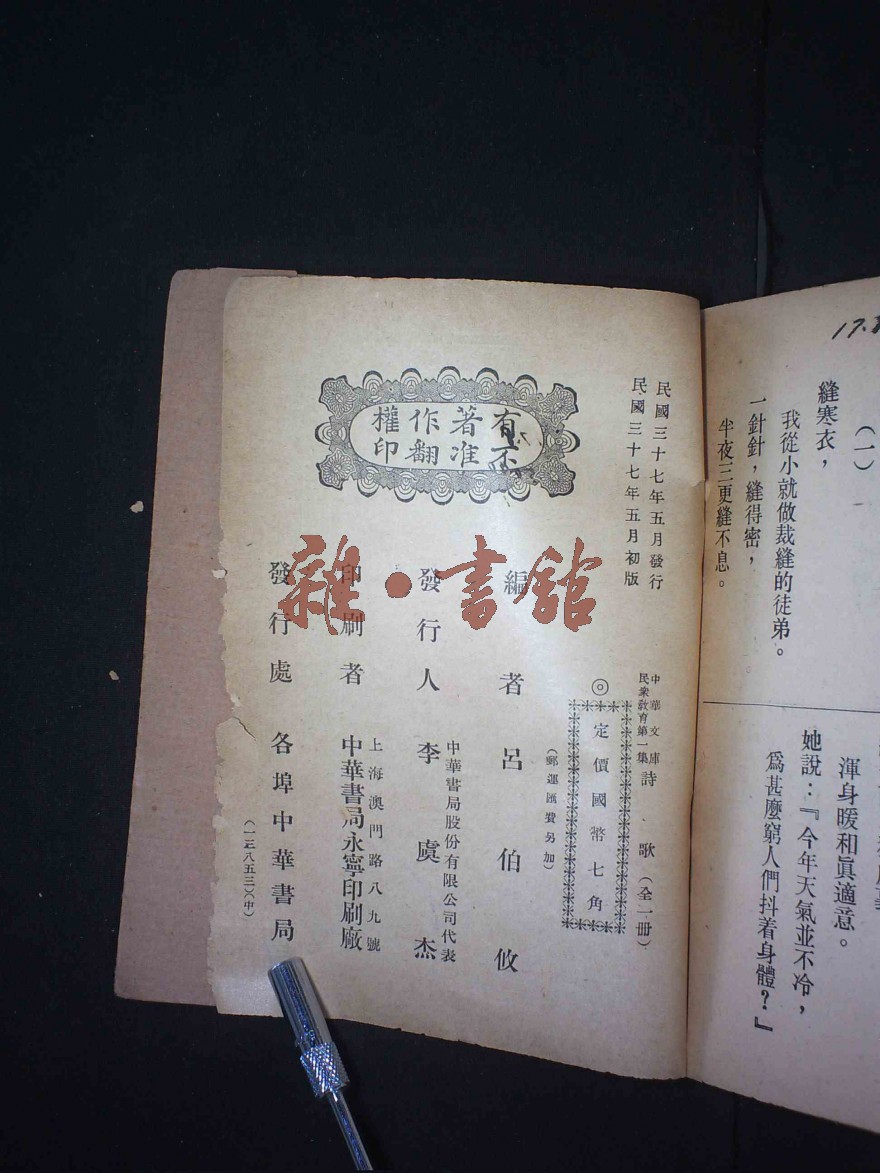 17.
(一)
縫寒衣，
我從小就做裁縫的徒弟。
一針針，縫得密，
半夜三更縫不息。
渾身暖和眞適意。
她說：『今年天氣並不冷，
爲甚麼窮人們抖着身體？』
民國三十七年五月發行
民國三十七年五月初版
中華文庫
民衆敎育第一集
詩歌（全一册）
◎定價國幣七角
（郵運匯費另加）
有著作權
不准翻印
編者 呂伯攸
發行人 李虞杰
中華書局股份有限公司代表
印刷者 中華書局永寧印刷廠
上海澳門路八九號
發行處 各埠中華書局
（一三八五三）（中）
雜·書館